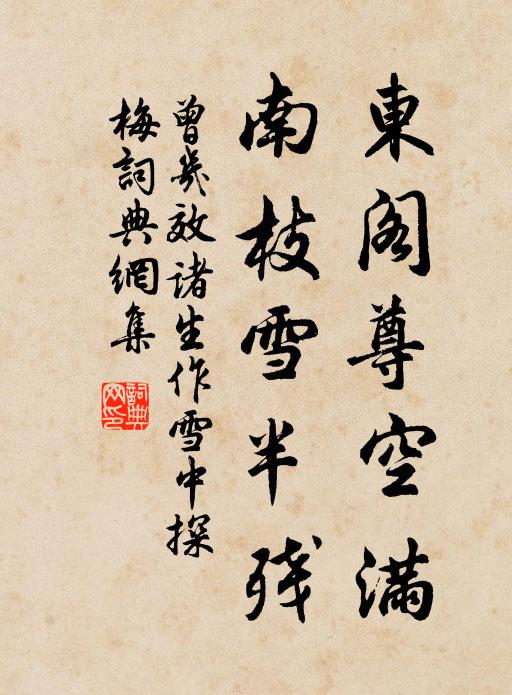 東阁尊空滿
南枝雪半残
曾幾效诸生作雪中探
梅詞典網集
詞典网印